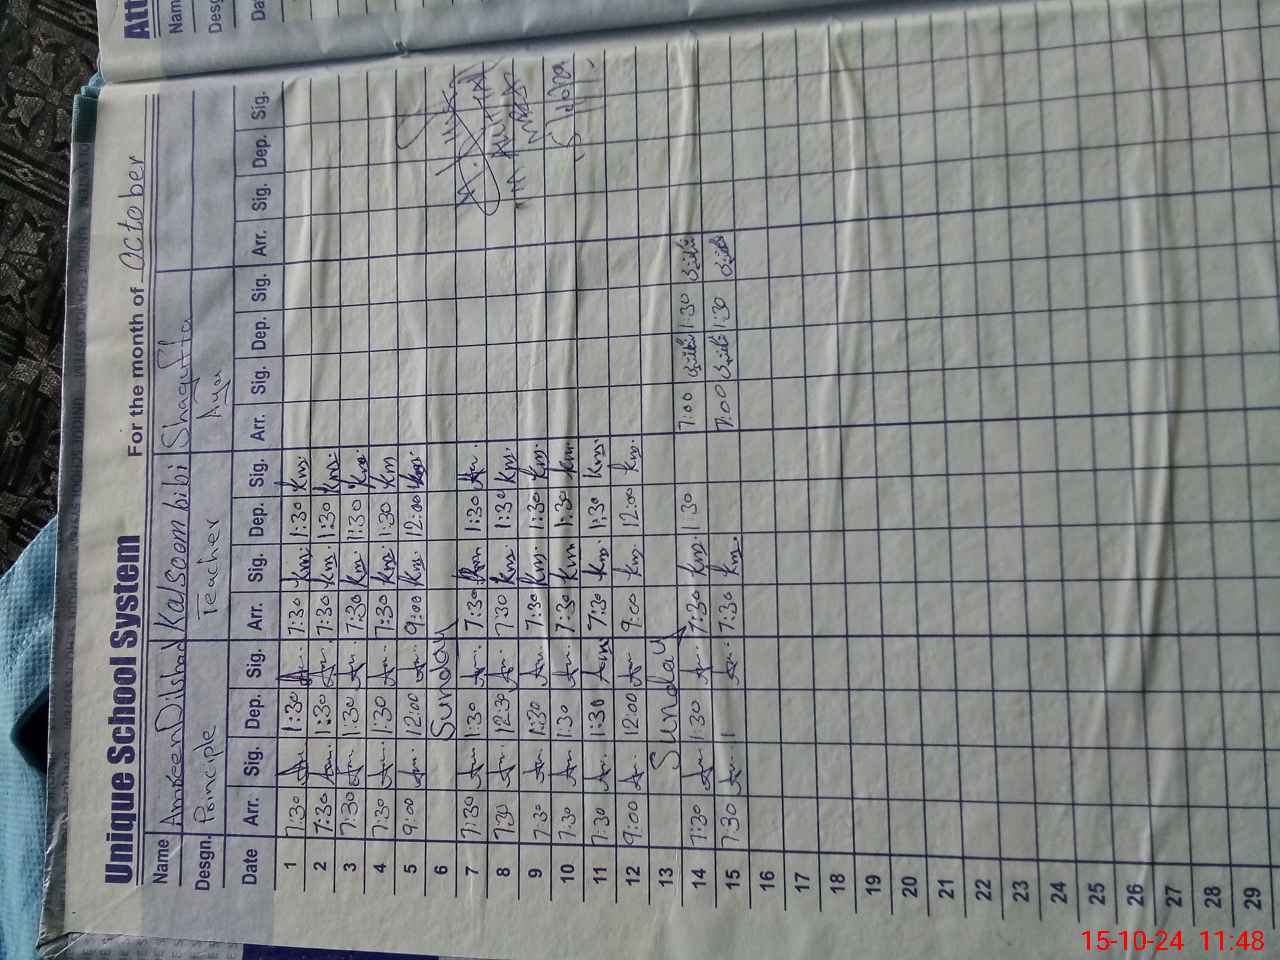 Unique School System For the month of October
Name Ambreen Dilshad Kalsoom bibi Shagufta
Desgn. Principle Teacher Aya
Date Arr. Sig. Dep. Sig. Arr. Sig. Dep. Sig. Arr. Sig. Dep. Sig. Arr. Sig. Dep. Sig.
1 7:30 1:30 7:30 Km. 1:30 Km.
2 7:30 1:30 7:30 Km. 1:30 Km.
3 7:30 1:30 7:30 Km. 1:30 Km.
4 7:30 1:30 7:30 Km. 1:30 Km
5 9:00 12:00 9:00 Km. 12:00 Km.
6 Sunday
7 7:30 1:30 7:30 1:30
8 7:30 12:30 7:30 Km. 1:30 Km.
9 7:30 1:30 7:30 Km. 1:30 Km.
10 7:30 1:30 7:30 Km 1:30 Km.
11 7:30 1:30 7:30 Km. 1:30 Km.
12 9:00 12:00 9:00 Km. 12:00 Km.
13 Sunday
14 7:30 1:30 7:30 Km. 1:30 7:00 1:30
15 7:30 1 7:30 Km. 7:00 1:30
16
17
18
19
20
21
22
23
24
25
26
27
28
29
15-10-24 11:48